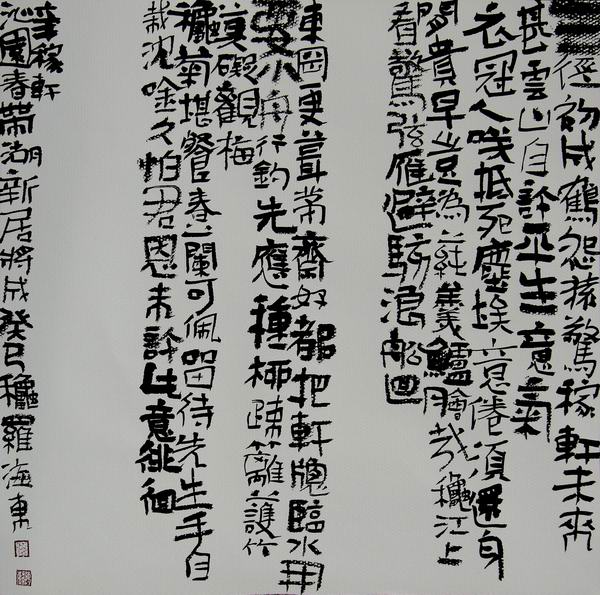 三徑初成鶴怨猿驚稼軒未來
甚雲山自許平生意氣
衣冠人咲抵死塵埃意倦須還身
閒貴早豈為蓴羹鱸膾哉龝江上
看驚弦雁避駭浪船回
東岡更葺茅齋好都把軒牕臨水開
要小舟行釣先應種柳疎籬護竹
莫礙觀梅
龝菊堪餐春蘭可佩留待先生手自
栽沈吟久怕君恩未許此意徘徊
辛稼軒
沁園春帶湖新居將成癸巳龝羅海東